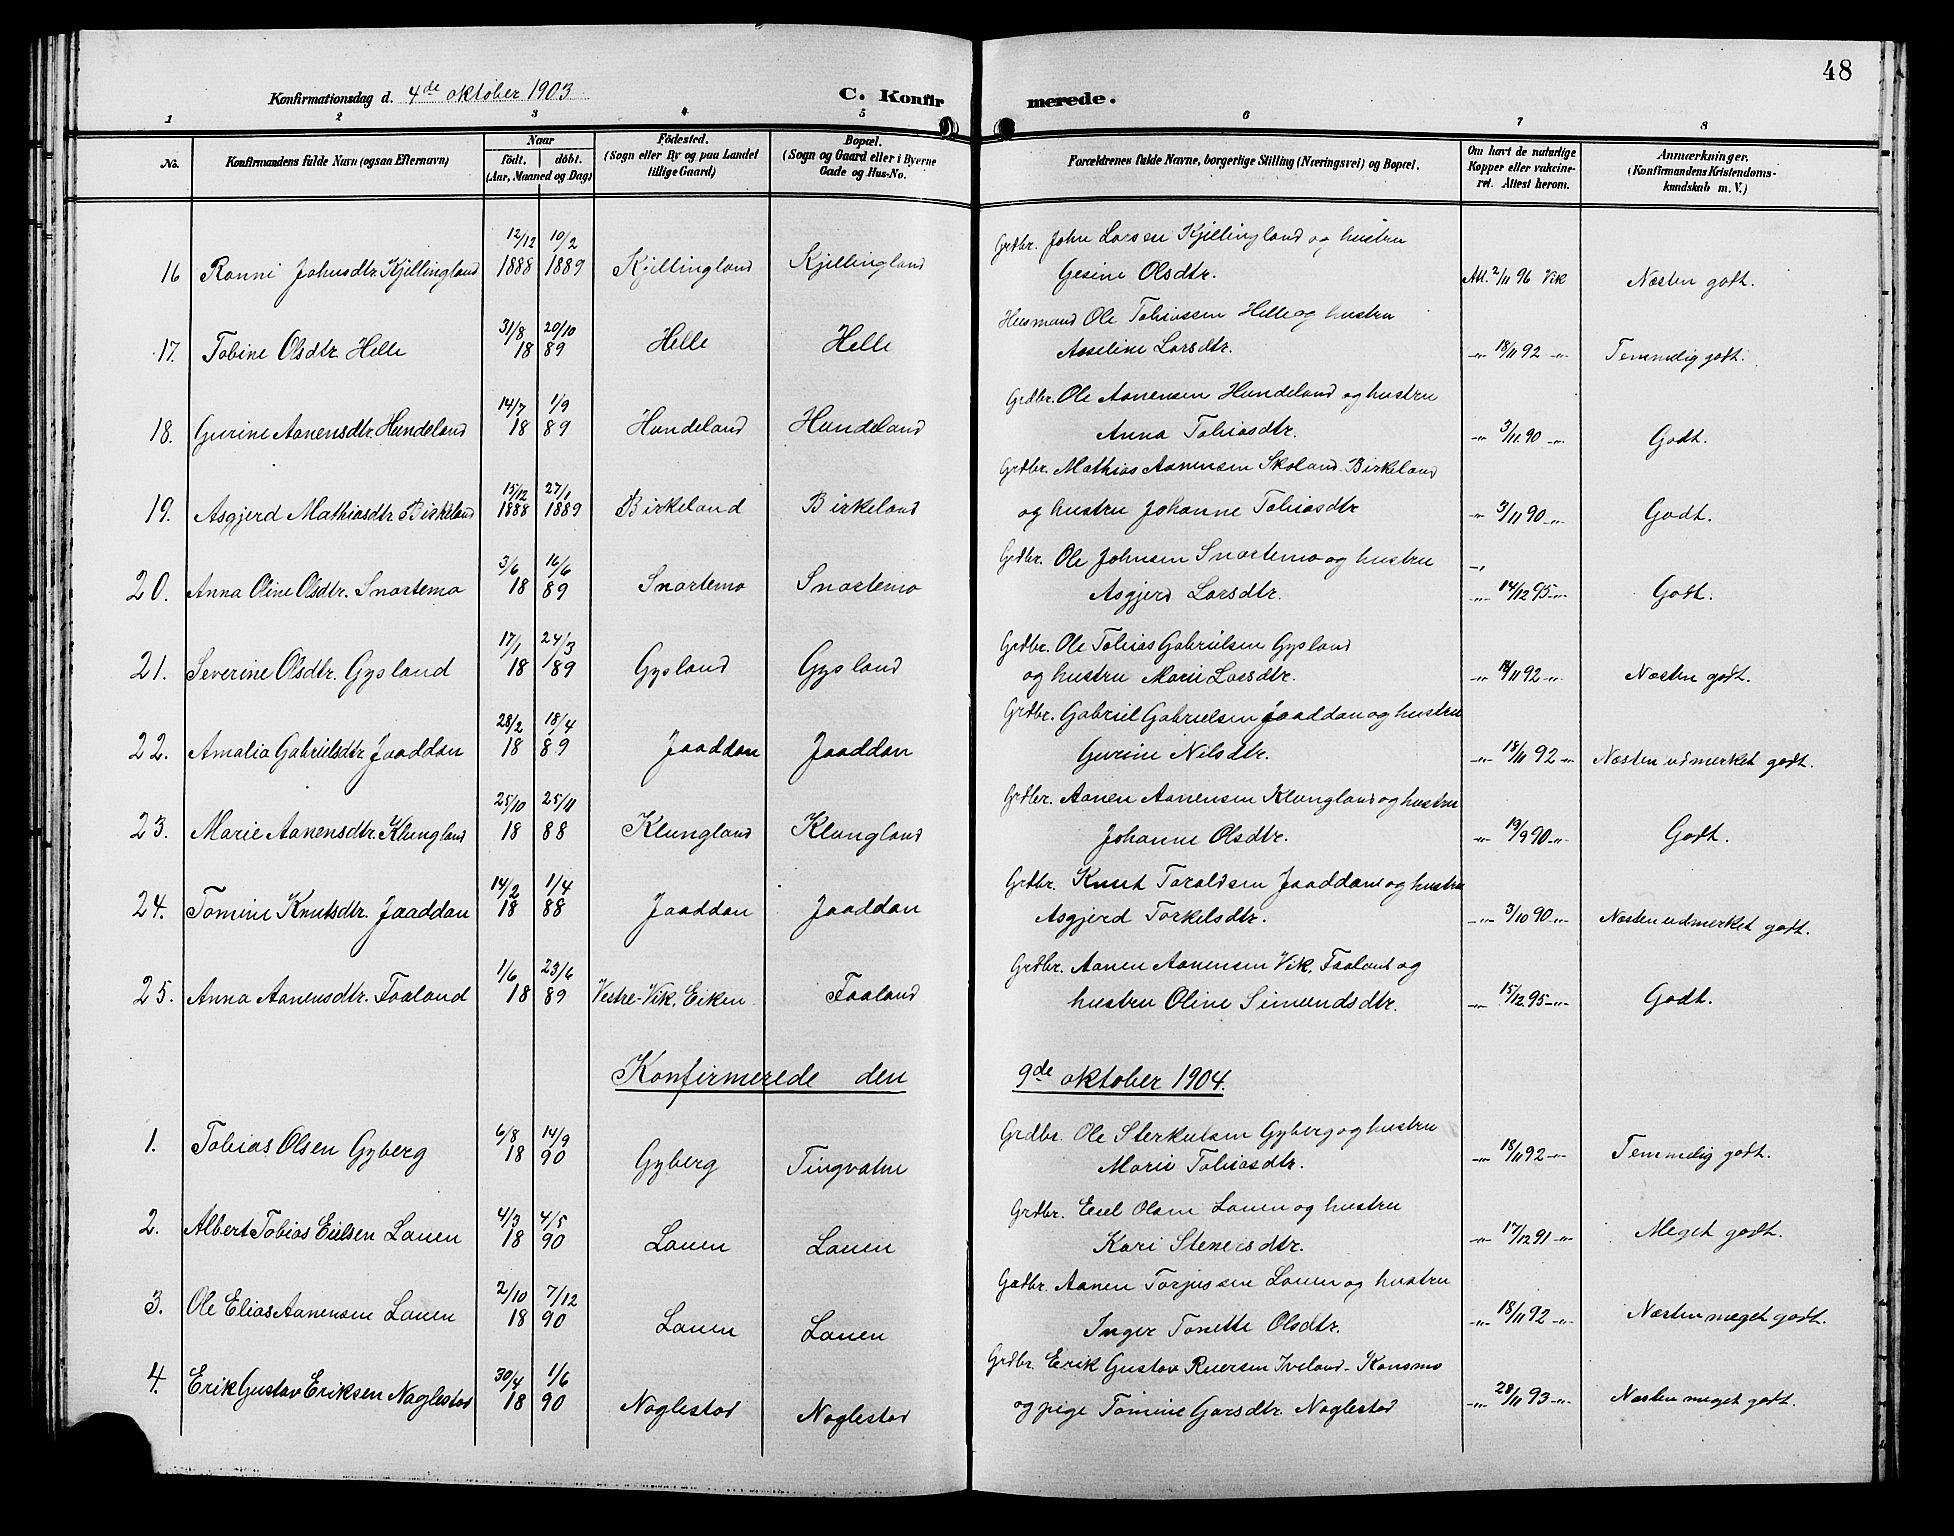 48
Konfirmationsdag d. 4de oktober 1903 C. Konfirmerede.
1 2 3 4 5 6 7 8
No. Konfirmandens fulde Navn (ogsaa Efternavn) Naar født. døbt. (Aar, Maaned og Dag) Fødested. (Sogn eller By og paa Landet tillige Gaard) Bopæl. (Sogn og Gaard eller i Byerne Gade og Hus-No. Forældrenes fulde Navne, borgerlige Stilling (Næringsvei) og Bopæl. Om havt de naturlige Kopper eller vakcineret. Attest herom. Anmærkninger. (Konfirmandens Kristendomskundskab m. V.)
12/12 10/2 Grdbr. John Larsen Kjillingland og hustru
16 Ranni Johnsdtr. Kjillingland 1888 1889 Kjillingland Kjillingland Gesine Olsdtr. Att. 2/11 96 Vik Næsten godt.
31/8 20/10 Husmand Ole Tobiassen Helle og hustru
17. Tobine Olsdtr. Helle 18 89 Helle Helle Aaseline Larsdtr. -"- 18/11 92 -"- Temmelig godt.
14/7 1/9 Grdbr. Ole Aanensen Hundeland og hustru
18. Gurine Aanensdtr. Hundeland 18 89 Hundeland Hundeland Anna Tobiasdtr. -"- 3/11 90 -"- Godt.
15/12 27/1 Grdbr. Mathias Aanensen Skoland-Birkeland
19. Asgjerd Mathiasdtr. Birkeland 1888 1889 Birkeland Birkeland og hustru Johanne Tobiasdtr -"- 3/11 90 -"- Godt.
3/6 16/6 Grdbr. Ole Johnsen Snartemo og hustru
20. Anna Oline Olsdtr. Snartemo 18 89 Snartemo Snartemo Asgjerd Larsdtr. -"- 14/12 95 -"- Godt.
17/1 24/3 Grdbr. Ole Tobias Gabrielsen Gysland
21. Severine Olsdtr. Gysland 18 89 Gysland Gysland og hustru Marie Larsdtr. -"- 18/11 92 -"- Næsten godt.
28/2 18/4 Grdbr. Gabriel Gabrielsen Jaaddan og hustru
22. Amalia Gabrielsdtr Jaaddan 18 89 Jaaddan Jaaddan Gurine Nilsdtr. -"- 18/11 92 -"- Næsten udmerket godt.
25/10 25/11 Grdbr. Aanen Aanensen Klungland og hustru
23. Marie Aanensdtr. Klungland 18 88 Klungland Klungland Johanne Olsdtr. -"- 19/9 90 -"- Godt.
14/2 1/4 Grdbr. Knut Taraldsen Jaaddan og hustru
24. Tomine Knutsdtr. Jaaddan 18 88 Jaaddan Jaaddan Asgjerd Torkelsdtr. -"- 3/10 90 -"- Næsten udmerket godt.
1/6 23/6 Grdbr. Aanen Aanensen Vik, Faaland og
25. Anna Aanensdtr. Faaland 18 89 Vestre-Vik, Eiken Faaland hustru Oline Simundsdtr. -"- 15/12 95 -"- Godt.
Konfirmerede den 9de oktober 1904.
6/8 14/9 Grdbr. Ole Sterkulsen Gyberg og hustru
1. Tobias Olsen Gyberg 18 90 Gyberg Tingvatne Marie Tobiasdtr. -"- 18/11 92 -"- Temmelig godt.
4/3 4/5 Grdbr. Eiel Olsen Lauen og hustru
2. Albert Tobias Eielsen Lauen 18 90 Lauen Lauen Kari Stenersdtr. -"- 17/12 91 -"- Meget godt.
2/10 7/12 Grdbr. Aanen Torjussen Lauen og hustru
3. Ole Elias Aanensen Lauen 18 90 Lauen Lauen Inger Tonette Olsdtr. -"- 18/11 92 -"- Næsten meget godt.
30/4 1/6 Grdbr. Erik Gustav Reiersen Iveland-Konsmo
4. Erik Gustav Eriksen Naglestad 18 90 Naglestad Naglestad og pige Tomine Garsdtr. Naglestad -"- 28/11 93 -"- Næsten meget godt.